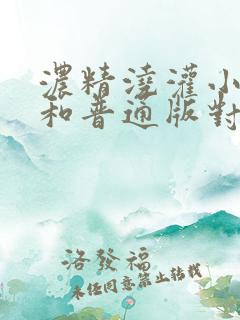 濃精澆灌小
和普通版對
洛發福
未任同意禁止转载